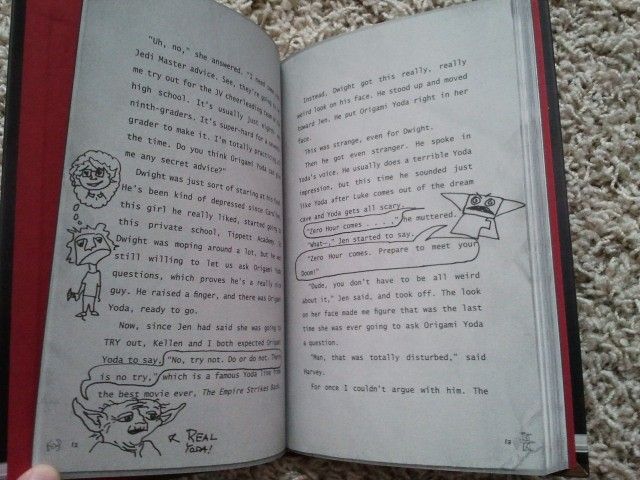 "Uh, no," she answered. "I need some
Jedi Master advice. See, they're going to
me try out for the JV cheerleading team
high school. It's usually just eighth and
ninth-graders. It's super-hard for a seventh
grader to make it. I'm totally practicing all
the time. Do you think Origami Yoda
me any secret advice?"
Dwight was just sort of staring at his
He's been kind of depressed since
this girl he really liked, started going to
this private school, Tippett Academy.
Dwight was moping around a lot, but he was
still willing to let us ask Origami Yoda
questions, which proves he's a really nice
guy. He raised a finger, and there was Origami
Yoda, ready to go.
Now, since Jen had said she was going to
TRY out, Kellen and I both expected Origami
Yoda to say, "No, try not. Do or do not. There
is no try," which is a famous Yoda line from
the best movie ever, The Empire Strikes Back.
REAL
YODA!
12
Instead, Dwight got this really, really
weird look on his face. He stood up and moved
toward Jen. He put Origami Yoda right in her
face.
This was strange, even for Dwight.
Then he got even stranger. He spoke in
Yoda's voice. He usually does a terrible Yoda
impression, but this time he sounded just
like Yoda after Luke comes out of the dream
cave and Yoda gets all scary.
"Zero Hour comes . . . .," he muttered.
"What—," Jen started to say.
"Zero Hour comes. Prepare to meet your
Doom!"
"Dude, you don't have to be all weird
about it," Jen said, and took off. The look
on her face made me figure that was the last
time she was ever going to ask Origami Yoda
a question.
"Man, that was totally disturbed," said
Harvey.
For once I couldn't argue with him. The
13